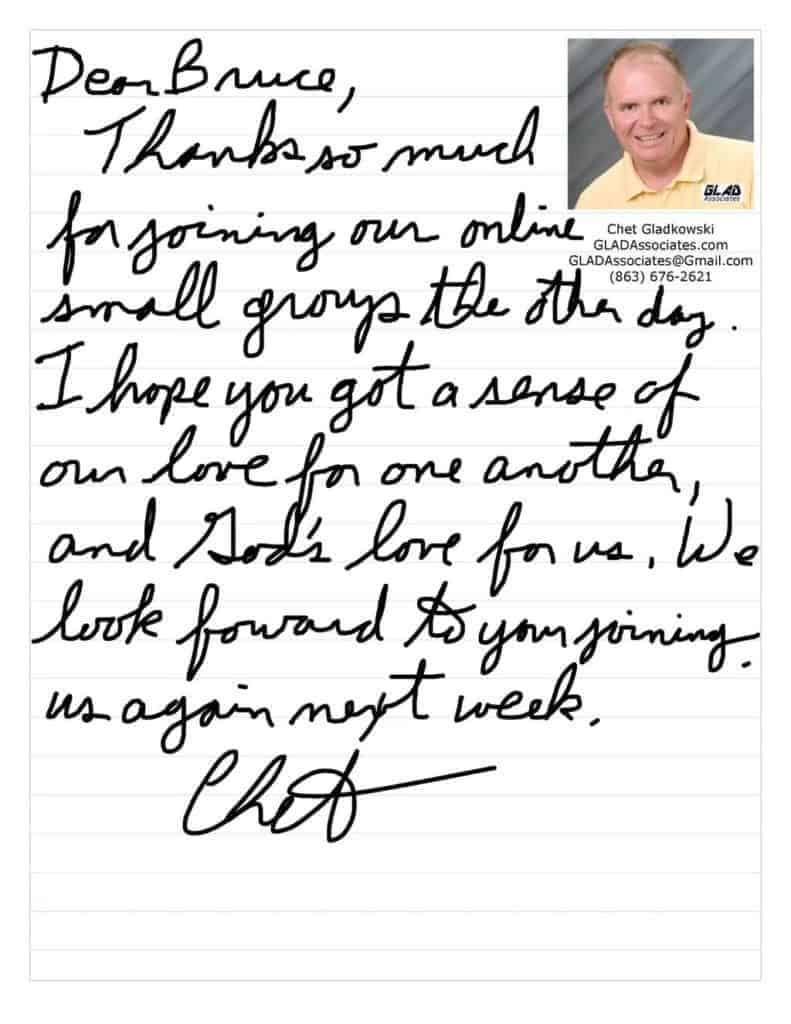 Dear Bruce,
Thanks so much
for joining our online
small groups the other day.
I hope you got a sense of
our love for one another,
and God's love for us. We
look foward to your joining
us again next week.
Chet
GLAD
ASSOCIATES
Chet Gladkowski
GLADAssociates.com
GLADAssociates@Gmail.com
(863) 676-2621